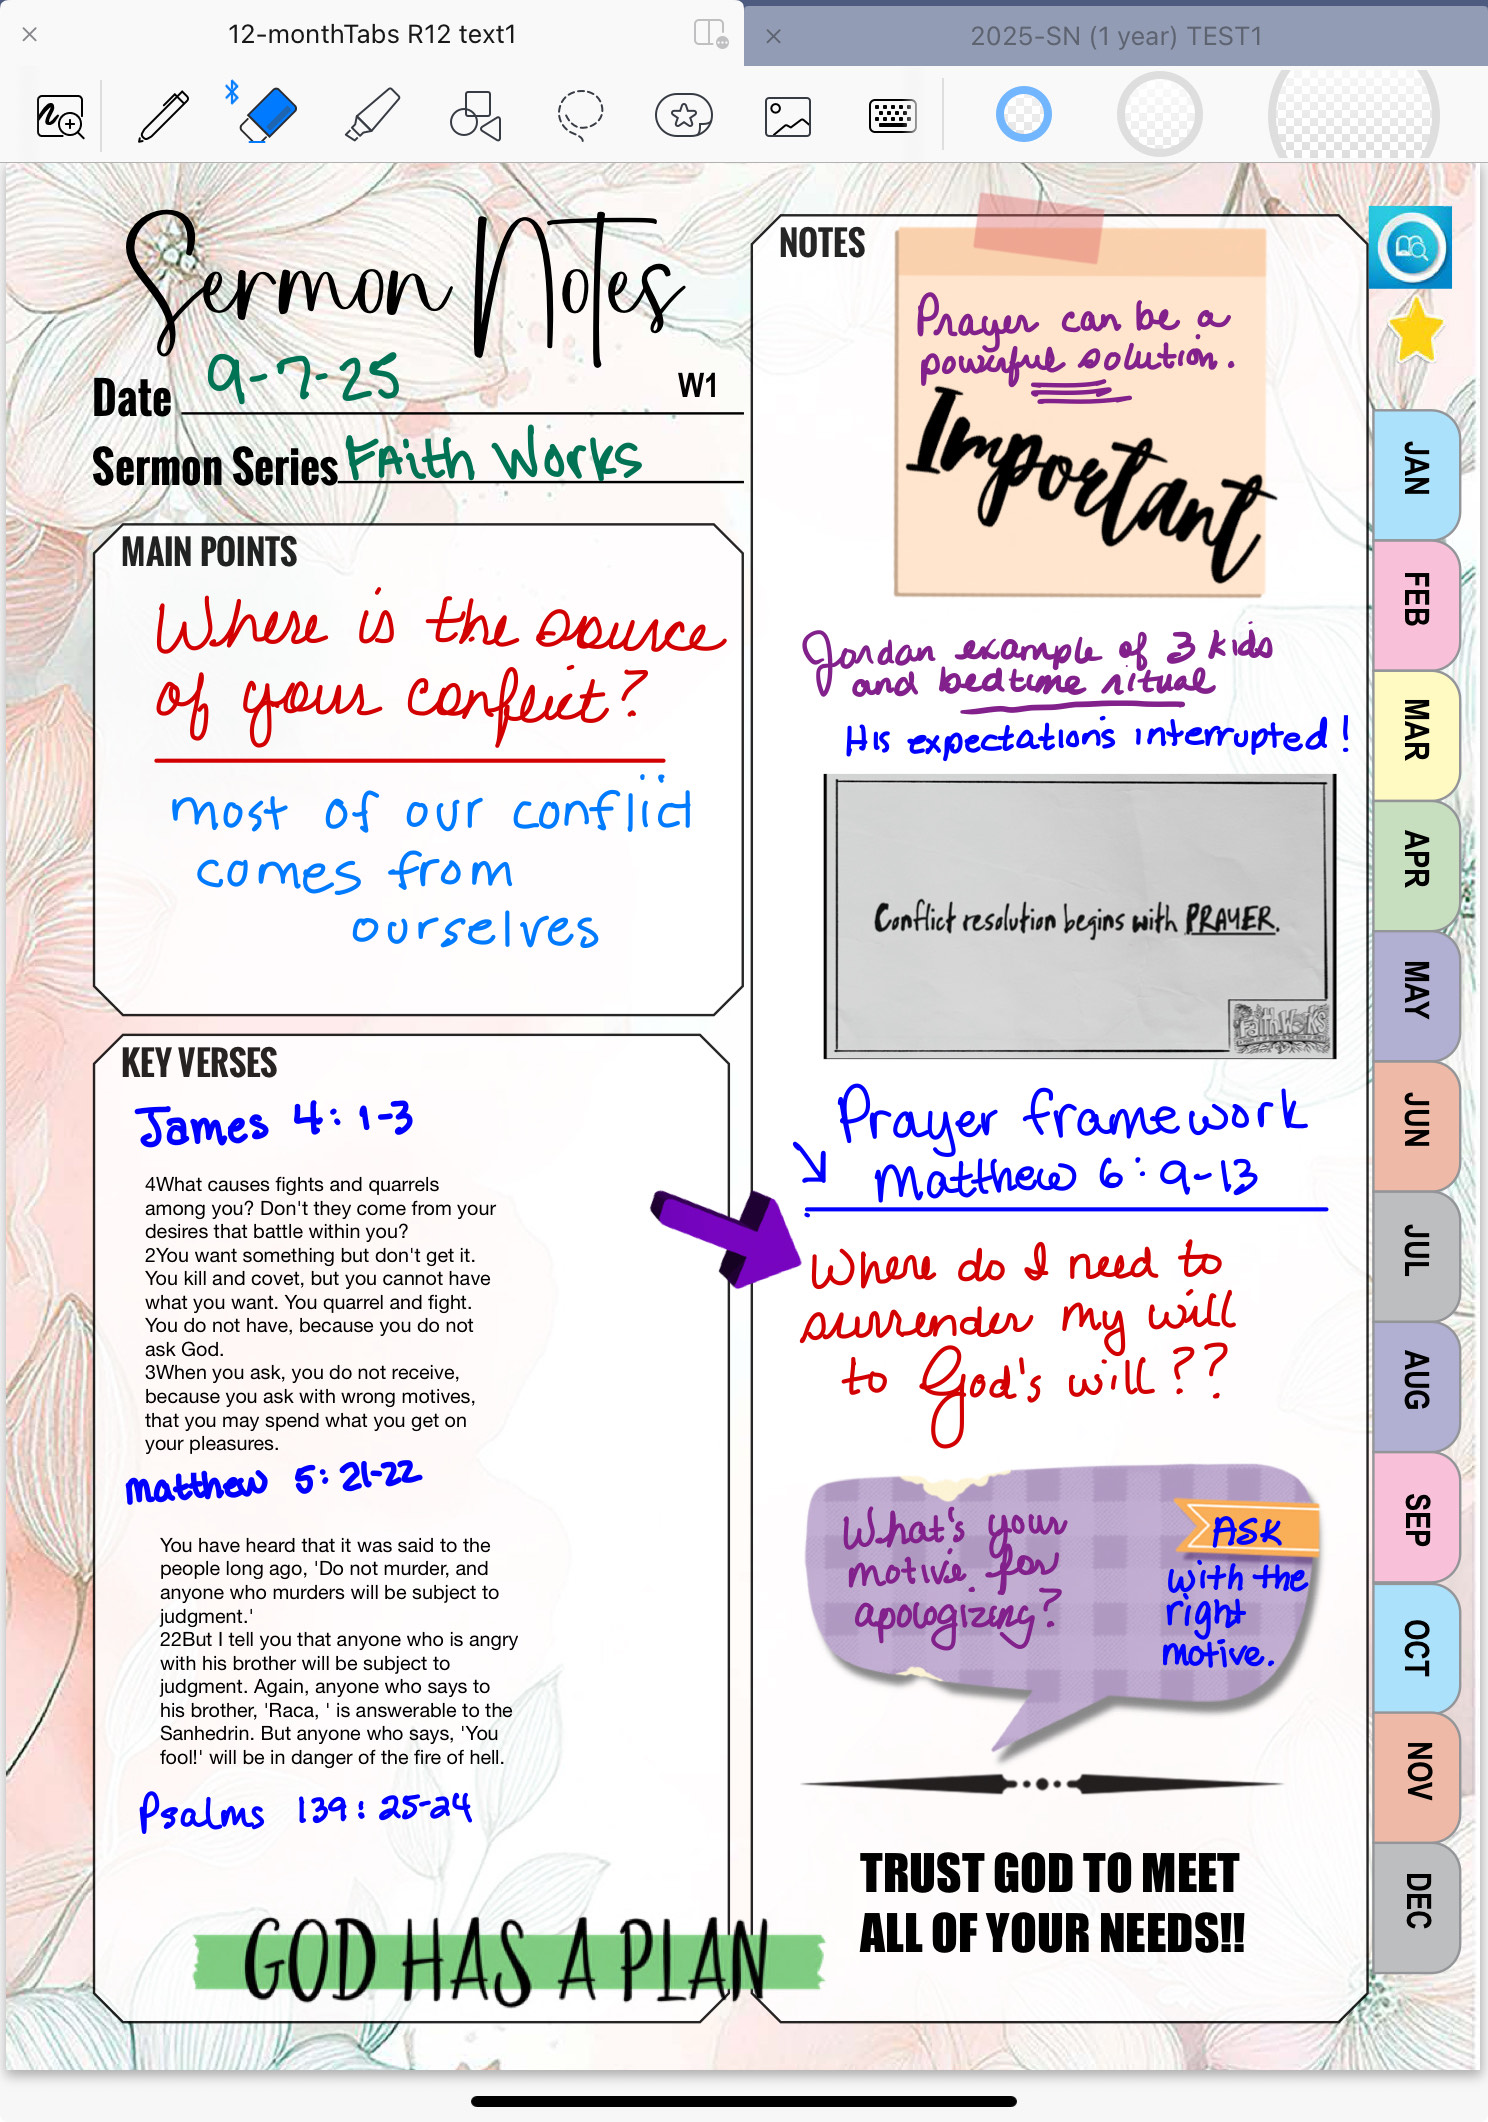 12-monthTabs R12 text1
2025-SN (1 year) TEST1
Sermon Notes
Date 9-7-25 W1
Sermon Series Faith Works
MAIN POINTS
Where is the source
of your conflict?
most of our conflict
comes from
ourselves
KEY VERSES
James 4: 1-3
4What causes fights and quarrels
among you? Don't they come from your
desires that battle within you?
2You want something but don't get it.
You kill and covet, but you cannot have
what you want. You quarrel and fight.
You do not have, because you do not
ask God.
3When you ask, you do not receive,
because you ask with wrong motives,
that you may spend what you get on
your pleasures.
Matthew 5: 21-22
You have heard that it was said to the
people long ago, 'Do not murder, and
anyone who murders will be subject to
judgment.'
22But I tell you that anyone who is angry
with his brother will be subject to
judgment. Again, anyone who says to
his brother, 'Raca, ' is answerable to the
Sanhedrin. But anyone who says, 'You
fool!' will be in danger of the fire of hell.
Psalms 139: 25-24
GOD HAS A PLAN
NOTES
Prayer can be a
powerful solution.
Important
Jordan example of 3 kids
and bedtime ritual
His expectations interrupted!
Conflict resolution begins with PRAYER.
Faith Works
Prayer framework
Matthew 6: 9-13
Where do I need to
surrender my will
to God's will??
What's your
motive for
apologizing?
ASK
with the
right
motive.
TRUST GOD TO MEET
ALL OF YOUR NEEDS!!
JAN
FEB
MAR
APR
MAY
JUN
JUL
AUG
SEP
OCT
NOV
DEC